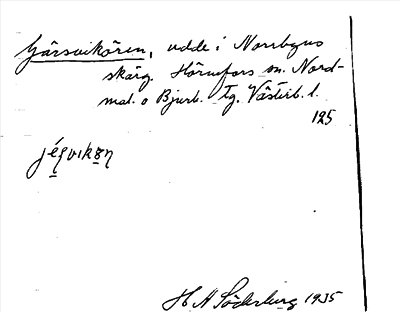 Gärsvikören, udde i Norrbyns
skärg. Hörnefors sn. Nord-
mal. o Bjurh. tg. Västerb. l.
195
H A Söderberg 1935